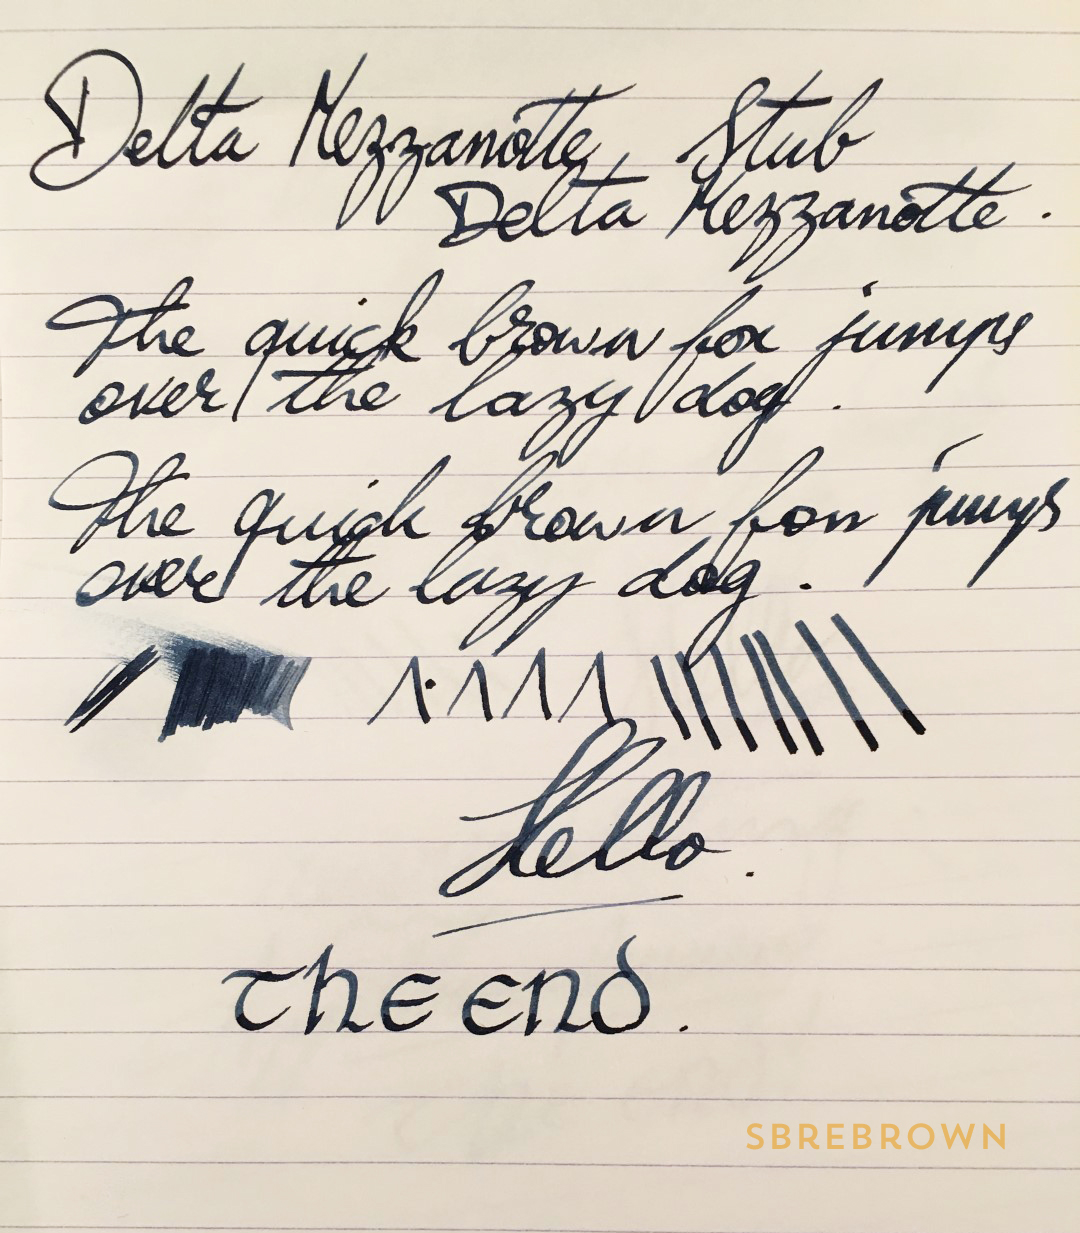 Delta Mezzanotte Stub
Delta Mezzanotte.
The quick brown fox jumps
over the lazy dog.
The quick brown fox jumps
over the lazy dog.
Hello.
The End.
SBREBROWN